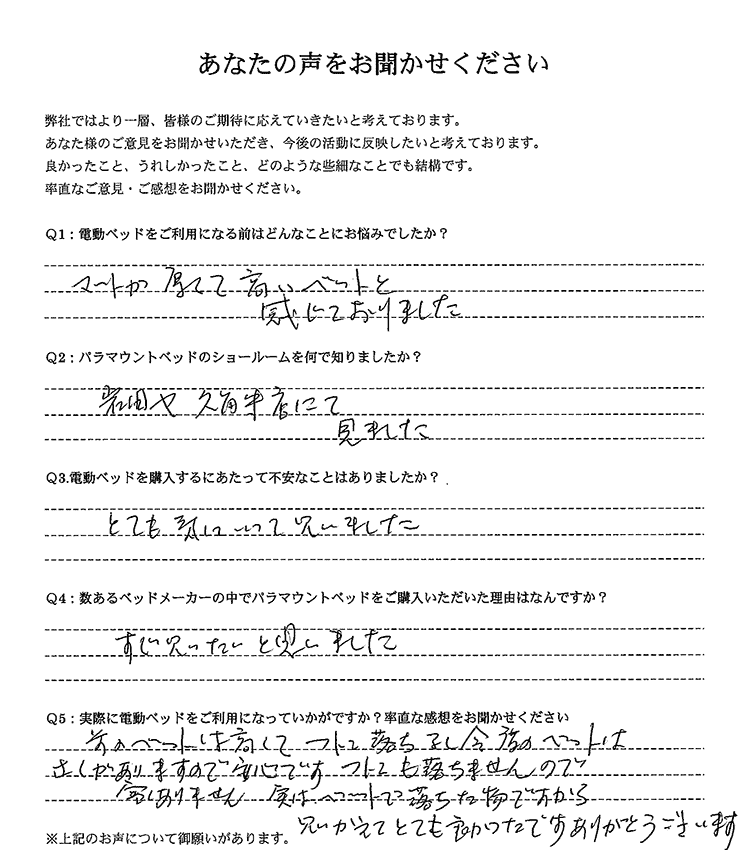 あなたの声をお聞かせください
弊社ではより一層、皆様のご期待に応えていきたいと考えております。
あなた様のご意見をお聞かせいただき、今後の活動に反映したいと考えております。
良かったこと、うれしかったこと、どのような些細なことでも結構です。
率直なご意見・ご感想をお聞かせください。
Q1：電動ベッドをご利用になる前はどんなことにお悩みでしたか？
マットが厚くて高いベットと
感じておりました
Q2：パラマウントベッドのショールームを何で知りましたか？
岩田や久留米店にて
見ました
Q3.電動ベッドを購入するにあたって不安なことはありましたか？
とても気にいって買いました
Q4：数あるベッドメーカーの中でパラマウントベッドをご購入いただいた理由はなんですか？
すぐ買いたいと思いました
Q5：実際に電動ベッドをご利用になっていかがですか？率直な感想をお聞かせください
前のベットは高くて ふとん落ちるし今度のベットは
さくがありますので安心です ふとんも落ちませんので
ありません 実はベットで落ちた物ですから
買いかえてとても良かったですありがとうございます
※上記のお声について御願いがあります。